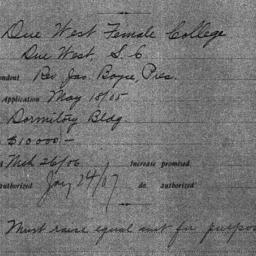 Due West Female College
Due West, S. C.
ondent Rev. Jas. Boyce, Pres.
Application May 15/05
Dormitory Bldg.
$10000—
Mch 26/06 Increase promised.
authorized Jany 24/07 do. authorized
Must raise equal amt for purpos